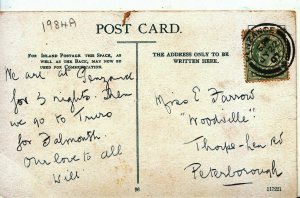 1984A
POST CARD.
FOR INLAND POSTAGE THIS SPACE, AS
WELL AS THE BACK, MAY NOW BE
USED FOR COMMUNICATION.
THE ADDRESS ONLY TO BE
WRITTEN HERE.
We are at Penzance
for 3 nights. Then
we go to Truro
for Falmouth.
Our love to all
Will
Miss E Farrow
"Woodville"
Thorpe-Lea Rd
Peterborough
96
117221